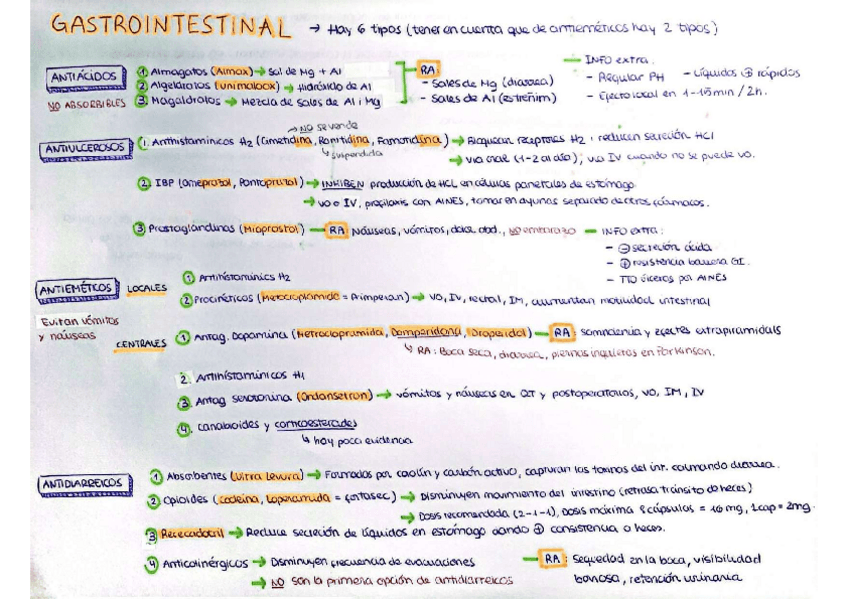 GASTROINTESTINAL → Hay 6 tipos (tener en cuenta que de antieméticos hay 2 tipos)
ANTIÁCIDOS
NO ABSORBIBLES
① Almagatos (Almax) → Sal de Mg + Al
② Algeldratos (Unimalook) → Hidróxido de Al
③ Magaldratos → Mezcla de sales de Al i Mg
RA:
- Sales de Mg (diarrea)
- Sales de Al (estreñim)
— INFO extra:
- Regular PH - Líquidos ⊕ rápidos
- Efecto local en 1-15min / 2h.
ANTIULCEROSOS
→ NO se vende
1. Antihistamínicos H2 (Cimetidina, Ranitidina, Famotidina) → Bloquean receptores H2 i reducen secreción HCl
↳ suspendida
→ vía oral (1-2 al día); via IV cuando no se puede vo.
2. IBP (omeprazol, Pantoprazol) → INHIBEN producción de HCL en células parietales de estómago
→ vo e IV, profilaxis con AINES, tomar en ayunas separado de otros fármacos.
③ Prostaglandinas (Misoprostol) — RA: Náuseas, vómitos, dolor abd., NO embarazo — INFO extra:
- ⊖ secreción ácida
- ⊕ resistencia barrera GI.
- TTO úlceras por AINES
ANTIEMÉTICOS
Evitan vómitos
y náuseas
LOCALES
① Antihistamínics H2
② Procinéticos (Metoclopramida = Primperan) → VO, IV, rectal, IM, aumentan motilidad intestinal
CENTRALES
① Antag. Dopamina (Metroclopramida, Domperidona, Droperidol) — RA: somnolencia y efectes extrapiramidals
↳ RA: Boca seca, diarrea, piernas inquietas en Parkinson.
2. Antihistamínicos H1
③ Antag serotonina (Ondansetron) → vómitos y náuseas en QT y postoperatorios, VO, IM, IV
④. canabioides y corticoesteroides
↳ hay poca evidencia
ANTIDIARREICOS
① Absorbentes (Ultra Levura) → Formados por caolín y carbón activo, capturan las toxinas del int. calmando diarrea.
② Opioides (codeína, Loperamida = fortasec) → Disminuyen movimiento del intestino (retrasa tránsito de heces)
→ Dosis recomendada (2-1-1), dosis máxima 8 cápsulas = 16 mg, 1 cap = 2mg.
③ Racecadotril → Reduce secreción de líquidos en estómago dando ⊕ consistencia a heces.
④ Anticolinérgicos → Disminuyen frecuencia de evacuaciones
→ NO son la primera opción de antidiarreicos
— RA: Sequedad en la boca, visibilidad
borrosa, retención urinaria